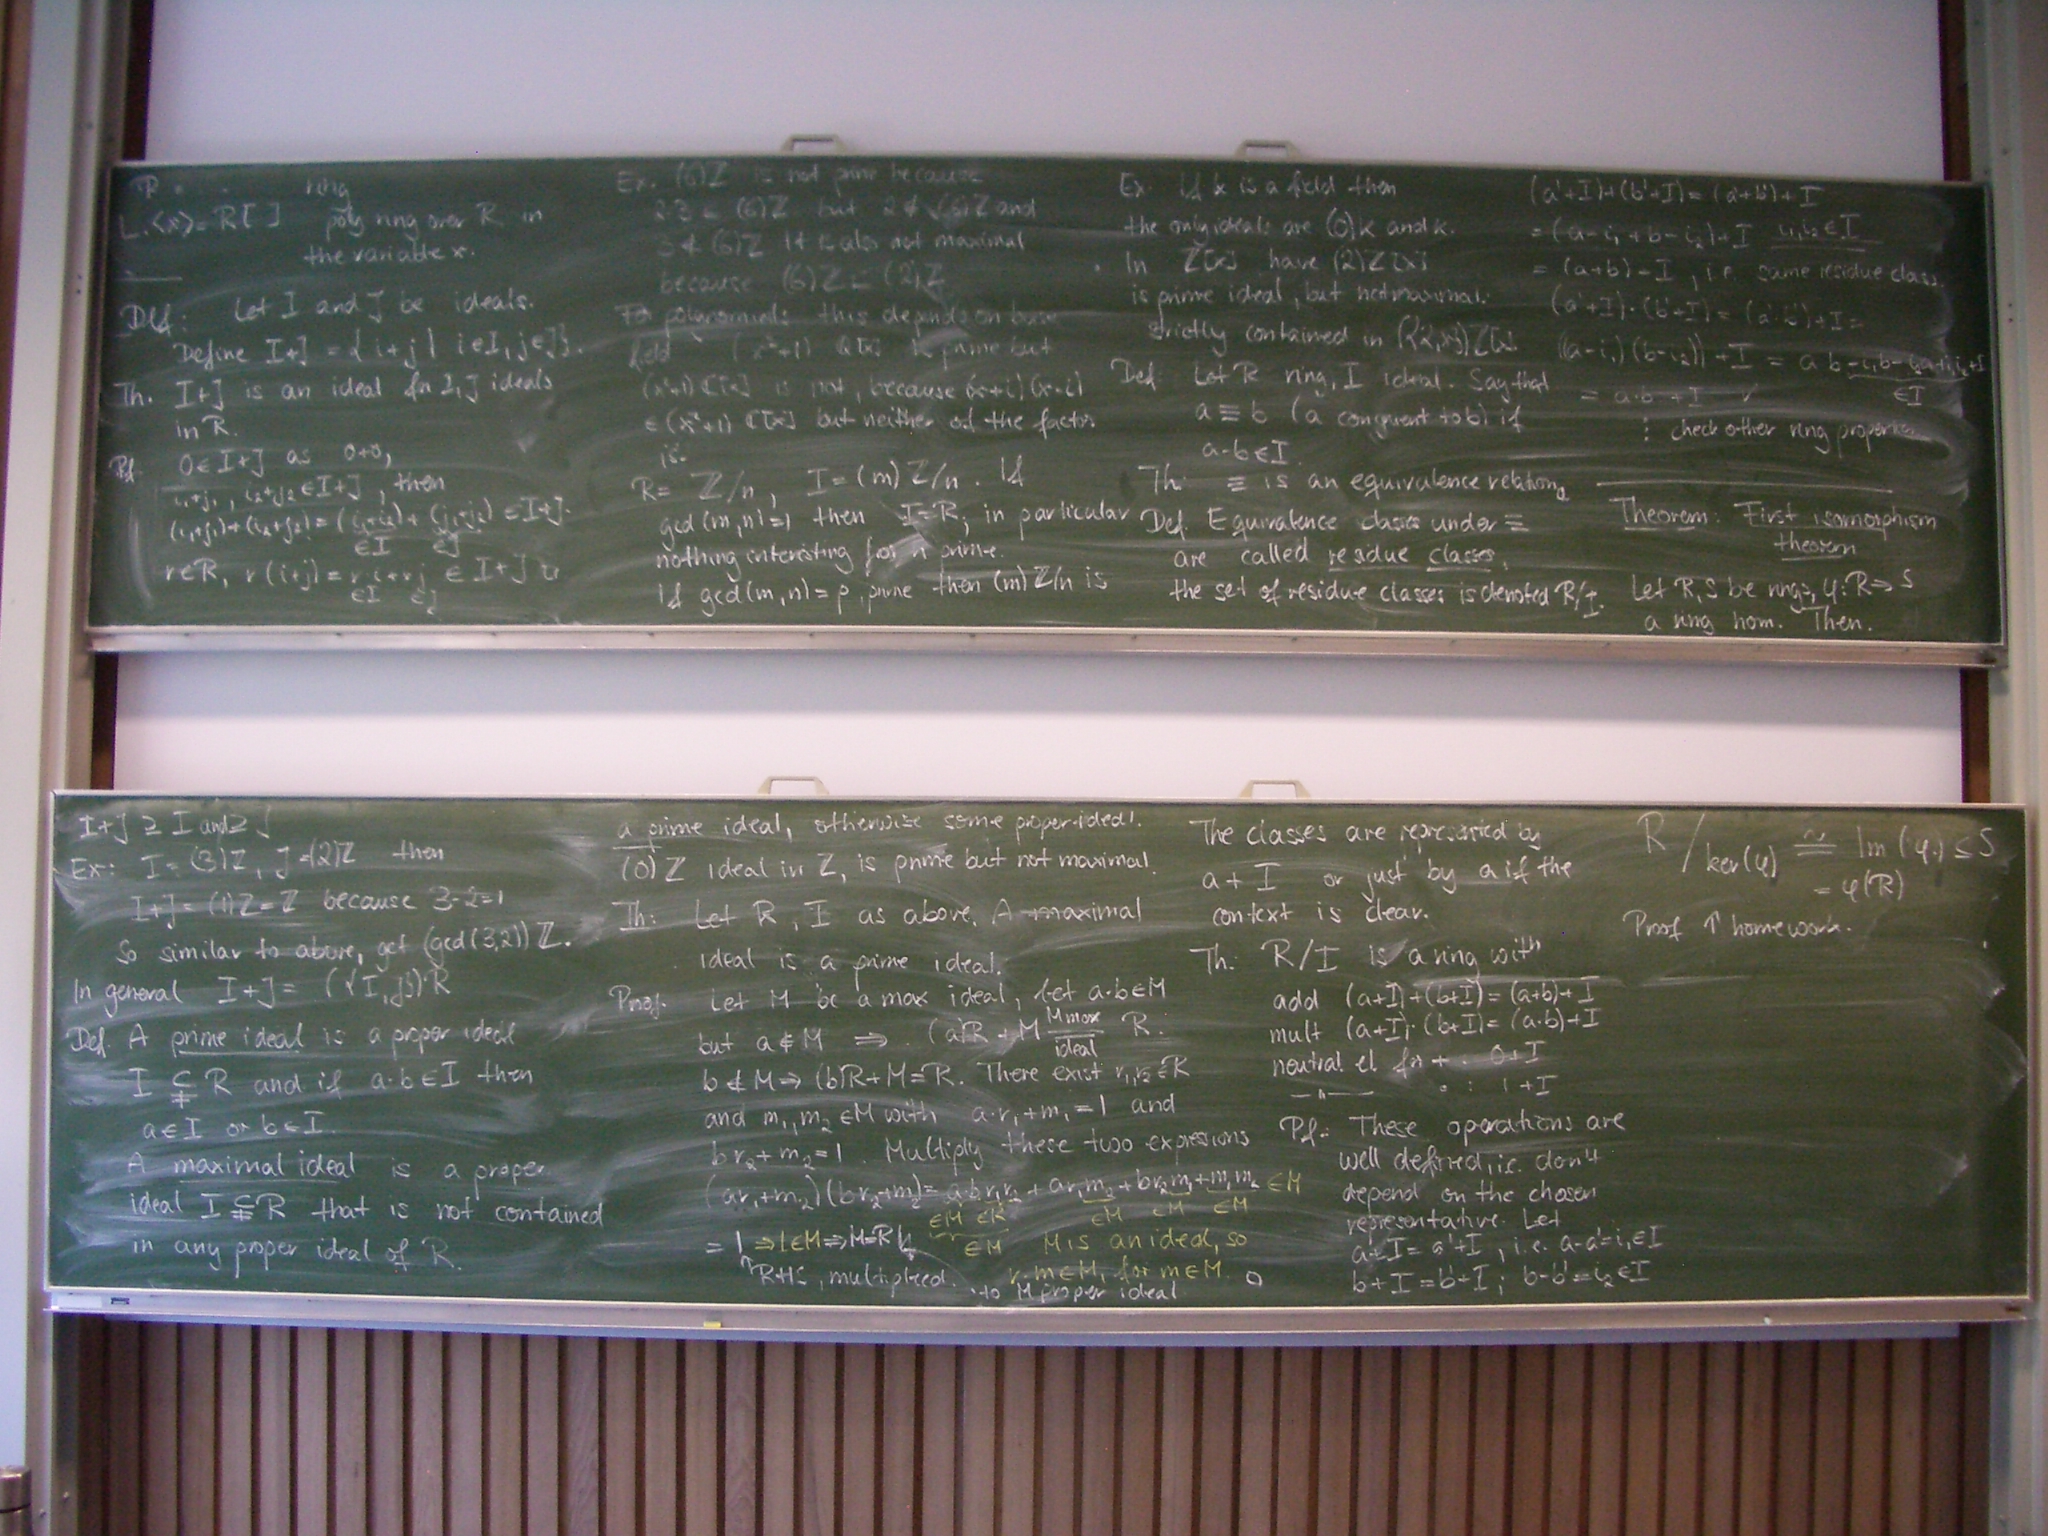 ring
L.<x> = R[ ] poly ring over R in
the variable x.
Def: Let I and J be ideals.
Define I+J = {i+j | i∈I, j∈J}.
Th. I+J is an ideal for I,J ideals
in R.
Pf. 0∈I+J as 0+0,
i₁+j₁, i₂+j₂∈I+J, then
(i₁+j₁)+(i₂+j₂) = (i₁+i₂)+(j₁+j₂) ∈I+J.
∈I ∈J
r∈R, r(i+j) = r·i+r·j ∈ I+J
∈I ∈J
Ex. (6)Z is not prime because
2·3 ∈ (6)Z but 2∉(6)Z and
3∉(6)Z It is also not maximal
because (6)Z ⊂ (2)Z
For polynomials this depends on base
field (x²+1) Q[x] is prime but
(x²+1) C[x] is not, because (x+i)(x-i)
∈ (x²+1) C[x] but neither of the factor
is.
R = Z/n, I = (m) Z/n. If
gcd(m,n)=1 then I=R; in particular
nothing interesting for n prime.
If gcd(m,n) = p, prime then (m) Z/n is
Ex. If k is a field then
the only ideals are (0)k and k.
In Z[x] have (2)Z[x]
is prime ideal, but not maximal.
strictly contained in ({2,x})Z[x]
Def: Let R ring, I ideal. Say that
a ≡ b (a congruent to b) if
a-b∈I.
Th: ≡ is an equivalence relation
Def. Equivalence classes under ≡
are called residue classes,
the set of residue classes is denoted R/I.
(a'+I)+(b'+I) = (a'+b')+I
= (a-i₁+b-i₂)+I i₁,i₂∈I
= (a+b)+I, i.e. same residue class.
(a'+I)·(b'+I) = (a'·b')+I =
((a-i₁)(b-i₂))+I = a·b-i₁b-i₂a+i₁i₂+I
= a·b+I ✓ ∈I
⋮ check other ring properties
Theorem: First isomorphism
theorem
Let R,S be rings, φ: R→S
a ring hom. Then.
I+J ⊇ I and ⊇ J
Ex: I = (3)Z, J = (2)Z then
I+J = (1)Z = Z because 3-2=1
So similar to above, get (gcd(3,2)) Z.
In general I+J = ({I,J})·R
Def. A prime ideal is a proper ideal
I ⊊ R and if a·b∈I then
a∈I or b∈I.
A maximal ideal is a proper
ideal I ⊊ R that is not contained
in any proper ideal of R.
a prime ideal, otherwise some proper ideal.
(0)Z ideal in Z, is prime but not maximal.
Th: Let R, I as above. A maximal
ideal is a prime ideal.
Proof. Let M be a max ideal, let a·b∈M
but a∉M ⇒ (a)R + M = R.
M max
ideal
b∉M ⇒ (b)R+M=R. There exist r₁,r₂∈R
and m₁,m₂∈M with a·r₁+m₁=1 and
br₂+m₂=1. Multiply these two expressions
(ar₁+m₂)(br₂+m₂) = a·b·r₁r₂ + ar₁m₂ + br₂m₁ + m₁m₂ ∈M
∈M ∈R ∈M ∈M ∈M
= 1 ⇒ 1∈M ⇒ M=R ∈M M is an ideal, so
RHS, multiplied. r·m∈M, for m∈M.
to M proper ideal
The classes are represented by
a+I or just by a if the
context is clear.
Th: R/I is a ring with
add (a+I)+(b+I) = (a+b)+I
mult (a+I)·(b+I) = (a·b)+I
neutral el for + : 0+I
—"— · : 1+I
Pf: These operations are
well defined, i.e. don't
depend on the chosen
representative. Let
a+I = a'+I, i.e. a-a'=i₁∈I
b+I = b'+I; b-b'=i₂∈I
R/ker(φ) ≅ Im(φ) ⊆ S
= φ(R)
Proof ↑ homework.